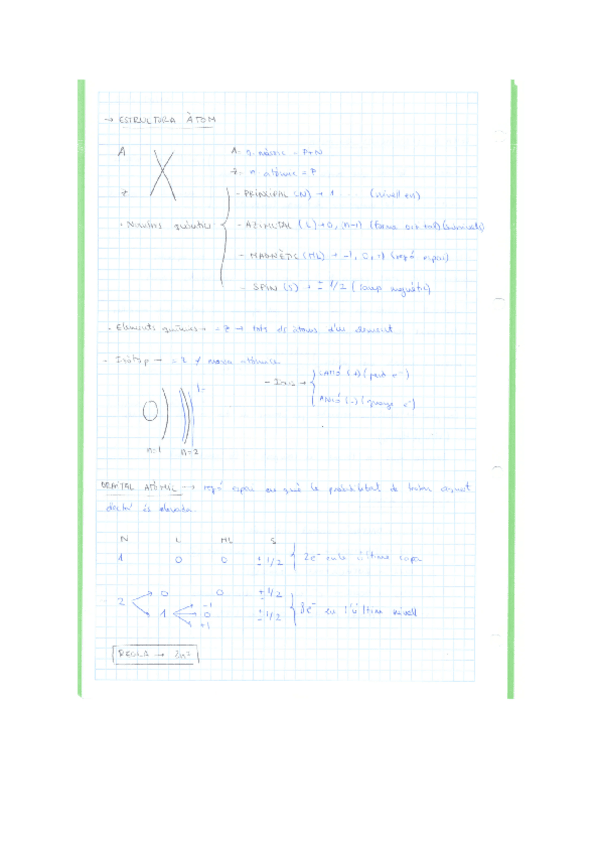 → ESTRUCTURA ÀTOM
A
X
Z
A = n. màssic = P+N
Z = n atòmic = P
- Números quàntics
- PRINCIPAL (N) → 1 ... (nivell en)
- AZIMUTAL (L) → 0, n-1) (forma orbital) (subnivells)
- MAGNÈTIC (ML) → -1, 0, 1 (regió espai)
- SPIN (S) → ± 1/2 (camp magnètic)
- Elements químics → = Z → tots els àtoms d'un element
- Isòtop → = Z ≠ massa atòmica.
- Ions →
CATIÓ (+) (perd e⁻)
ANIÓ (-) (guanya e⁻)
n=1 n=2
ORBITAL ATÒMIC → regió espai en què la probabilitat de trobar aquest
electró és elevada.
N L ML S
1 0 0 ± 1/2 2e⁻ última capa
2 0 0 ± 1/2
1 -1 0 +1 ± 1/2 8e⁻ en l'últim nivell
REGLA → 2n²